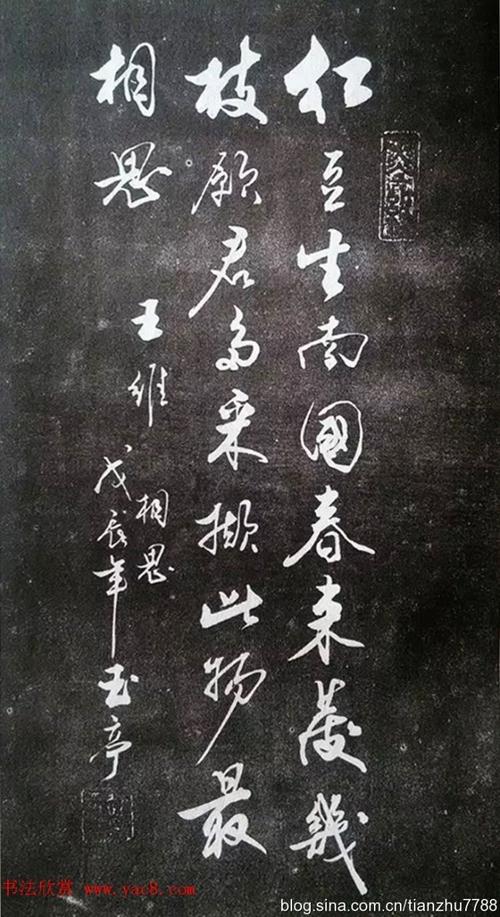 红豆生南國春来發幾
枝願君多采擷此物最
相思
王维
相思
戊辰年玉亭
书法欣赏 www.yac8.com
blog.sina.com.cn/tianzhu7788